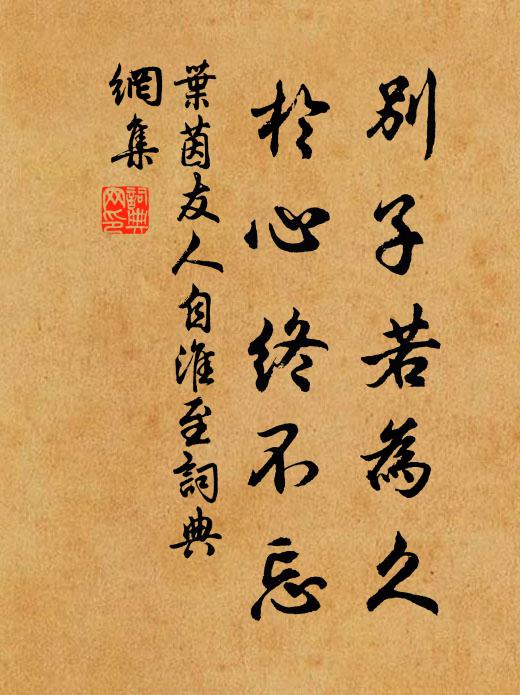 別子若為久
於心終不忘
葉茵友人自淮至詞典
網集
詞典
网印